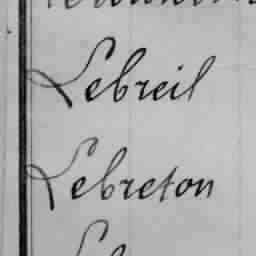 Lebreil
Lebreton